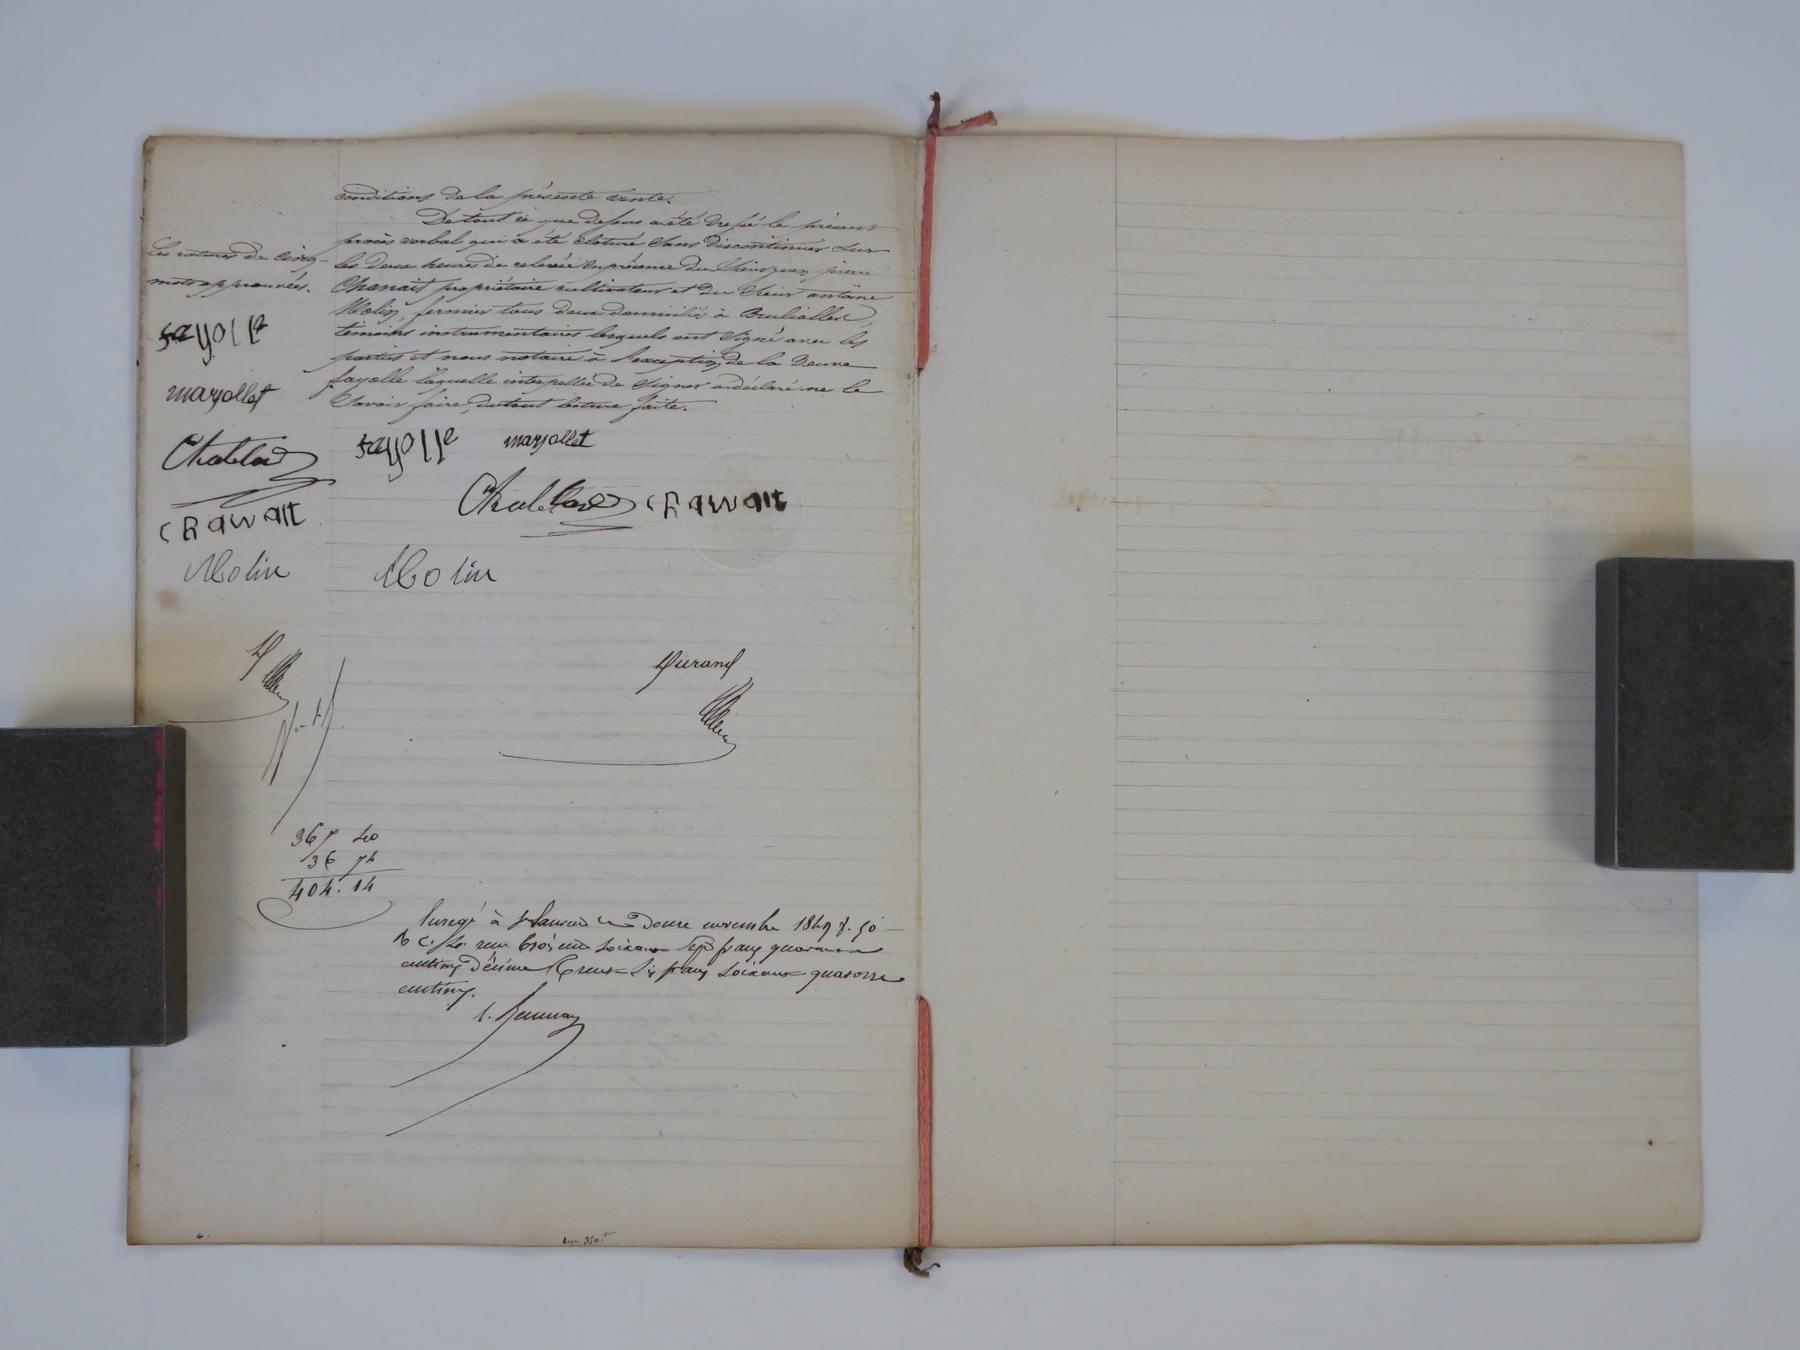 conditions de la présente vente.
De tout ce que dessus a été dressé le présent
procès verbal qui a été cloturé sans discontinuer sur
les deux heures de relevée en présence du Sieur jean pierre
Chanait propriétaire cultivateur et du Sieur antoine
Molin, fermier tous deux domiciliés à Brullioles,
témoins instrumentaires lesquels ont signé avec les
parties et nous notaire à l'exception de la Veuve
fayolle laquelle interpellée de signer a déclaré ne le
savoir faire, du tout lecture faite.
Les ratures de cinq
mots approuvées.
fayolle
marjollet
Chatelard
CHANAIT
Molin
fayolle marjollet
Chatelard CHANAIT
Molin
Durand
367 40
36 74
404. 14
Enregé à St Laurent le Douze novembre 1847 f. 50
c. reçu trois cent soixante sept francs quarante
centimes Décime trente Six francs soixante quatorze
centimes.